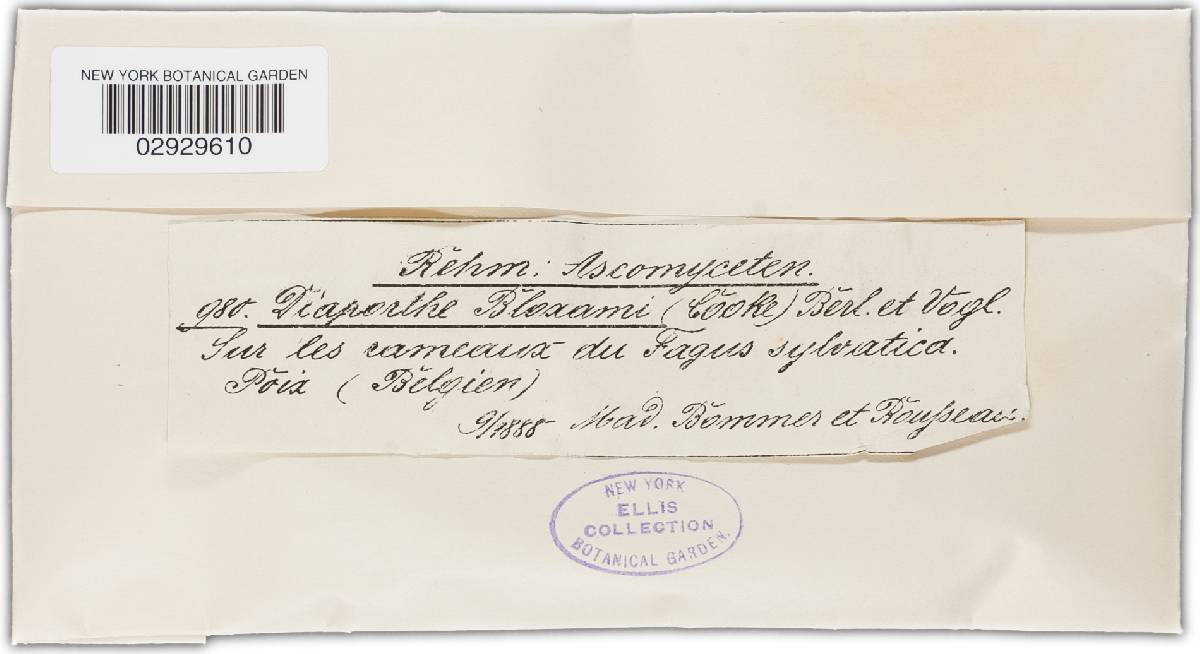 NEW YORK BOTANICAL GARDEN
02929610
Rehm: Ascomyceten.
980. Diaporthe Bloxami (Cooke) Berl. et Vogl.
Sur les rameaux du Fagus sylvatica.
Poix (Belgien)
9/1888 Mad. Bommer et Rousseau.
NEW YORK
ELLIS
COLLECTION
BOTANICAL GARDEN.